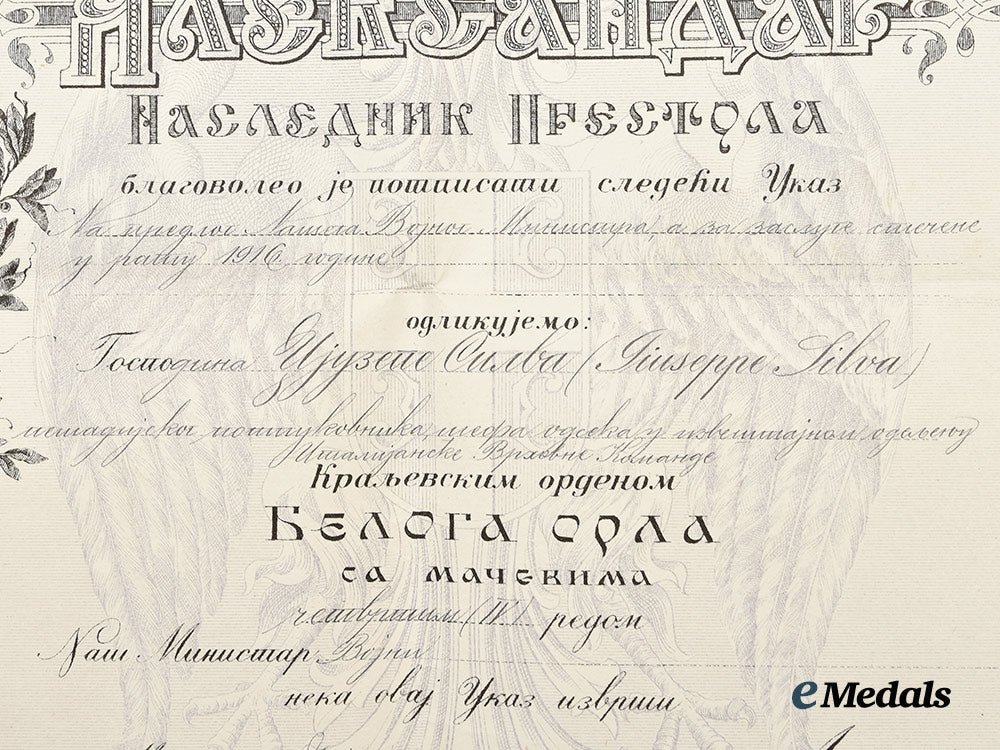 Александар
Наследник Престола
благоволео је потписати следећи Указ
На предлог Нашега Војног Министра, а за заслуге стечене
у рату 1916 године
одликујемо:
Господина Џузепе Силва (Giuseppe Silva)
пешадијског потпуковника, шефа одсека у извештајном одељењу
Италијанске Врховне Команде
Краљевским орденом
Белога орла
са мачевима
четвртим (IV) редом
Наш Министар Војни
нека овај Указ изврши
eMedals